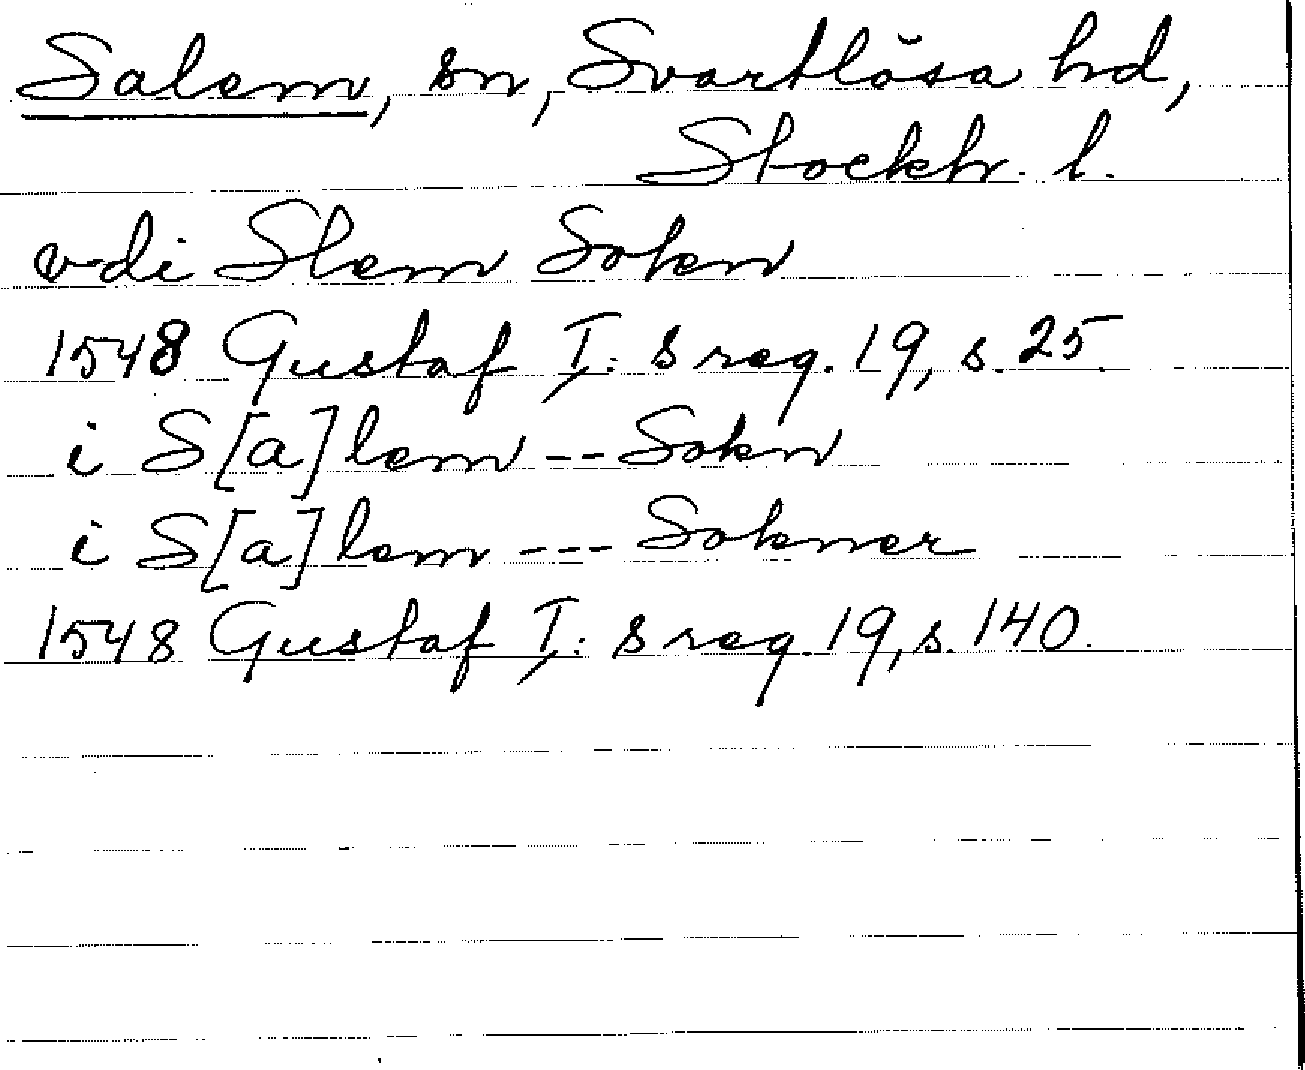 Salem, sn, Svartlösa hd,
Stockh. l.
vdi Slem Sokn
1548 Gustaf I:s reg. 19, s. 25.
i S[a]lem -- Sokn
i S[a]lem --- Sokner
1548 Gustaf I:s reg. 19, s. 140.